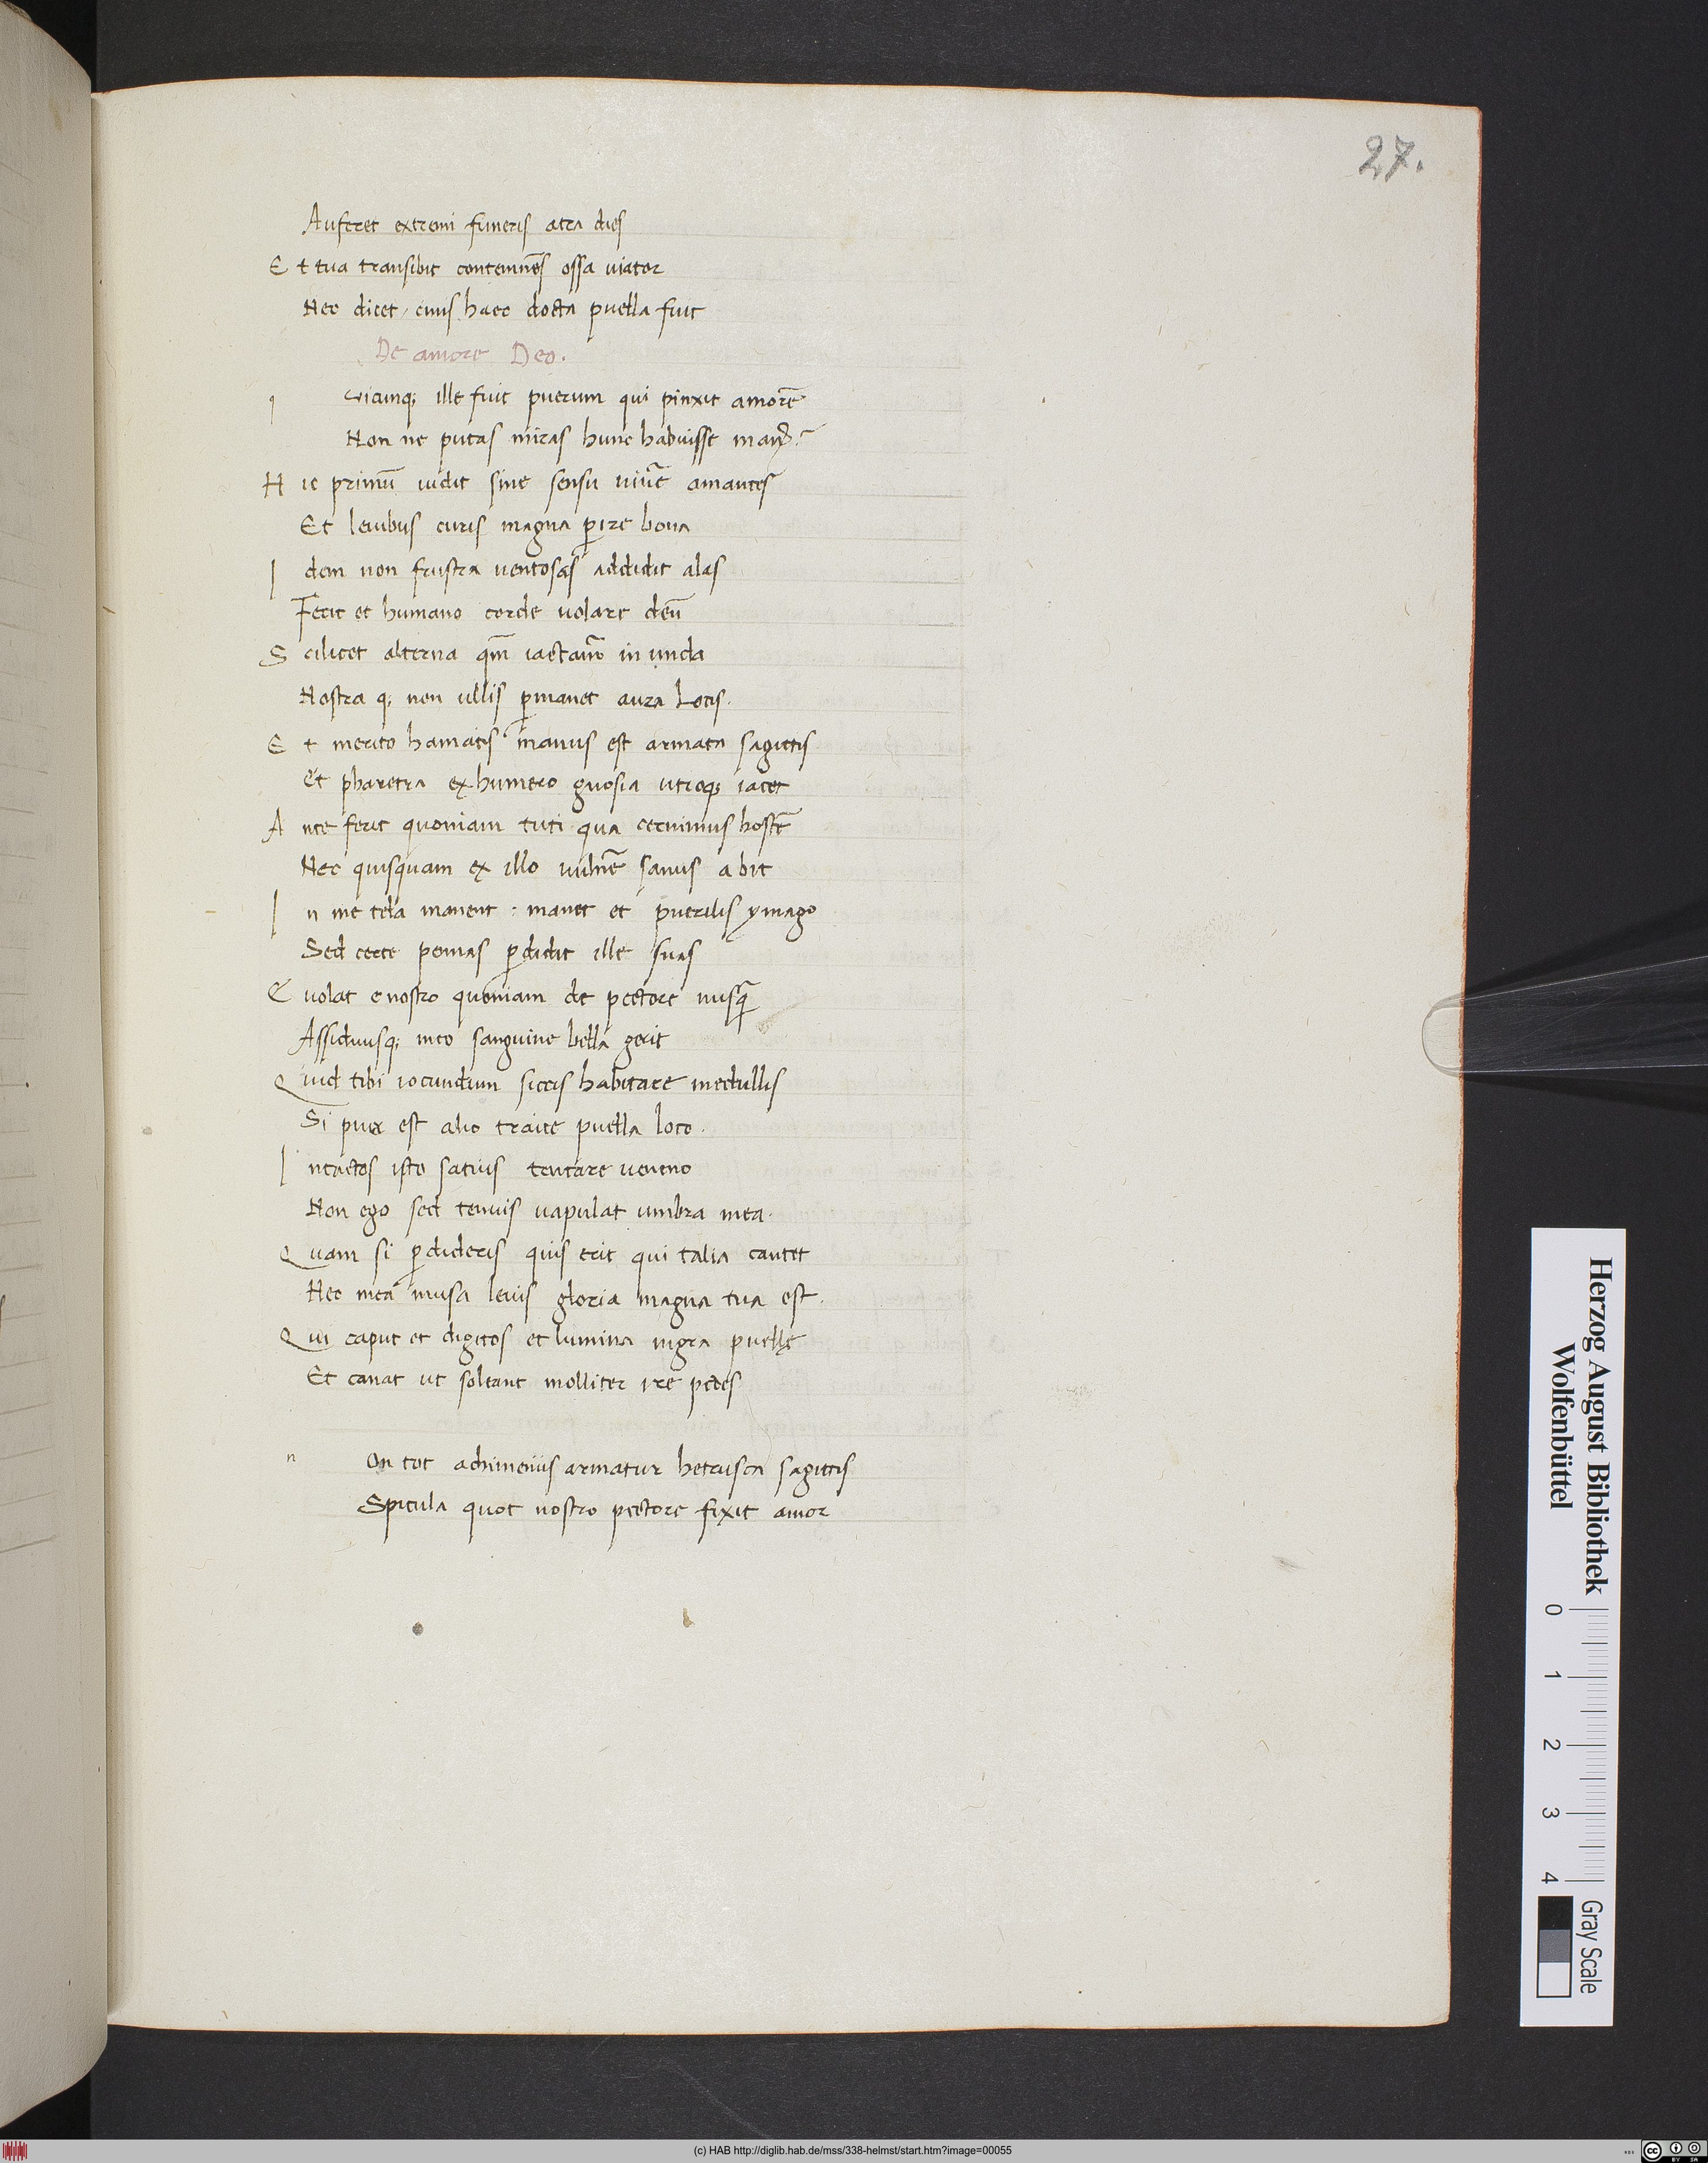 27.
Auferet extremi funeris atra dies
E t tua transibit contemnēs ossa uiator
Nec dicet, cuius haec docta puella fuit
De amore Deo.
q uicunq; ille fuit puerum qui pinxit amorē
Non ne putas miras hunc habuisse manꝰ?
H ic primū uidit sine sensu uiuē̃ amantes
Et leuibus curis magna ꝑire bona
I dem non frustra uentosas addidit alas
Fecit et humano corde uolare deū
S cilicet alterna qm̄ iactam̃ in unda
Nostra q; non ullis ꝑmanet aura Locis.
E t merito hamatis manus est armata sagittis
Et pharetra ex humero gnosia utroq; iacet
A nte ferit quoniam tuti qua cernimus hostē
Nec quisquam ex illo uulnē̃ sanus abit
I n me tela manent : manet et puerilis ymago
Sed certe pennas ꝑdidit ille suas
E uolat e nostro quoniam de pectore nusq̄
Assiduusq; meo sanguine bella gerit
Q uid tibi iocundum siccis habitare medullis
Si puer est alio traice puella loco.
I ntactos isto satius tentare ueneno
Non ego sed tenuis uapulat umbra mea.
Q uam si ꝑdideris quis erit qui talia cantet
Nec mea musa leuis gloria magna tua est.
Q ui caput et digitos et lumina nigra puellę
Et canat ut soleant molliter ire pedes
n On tot achimeniis armatur hetrusca sagittis
Spicula quot nostro pectore fixit amor
Herzog August Bibliothek
Wolfenbüttel
0 1 2 3 4
Gray Scale
(c) HAB http://diglib.hab.de/mss/338-helmst/start.htm?image=00055